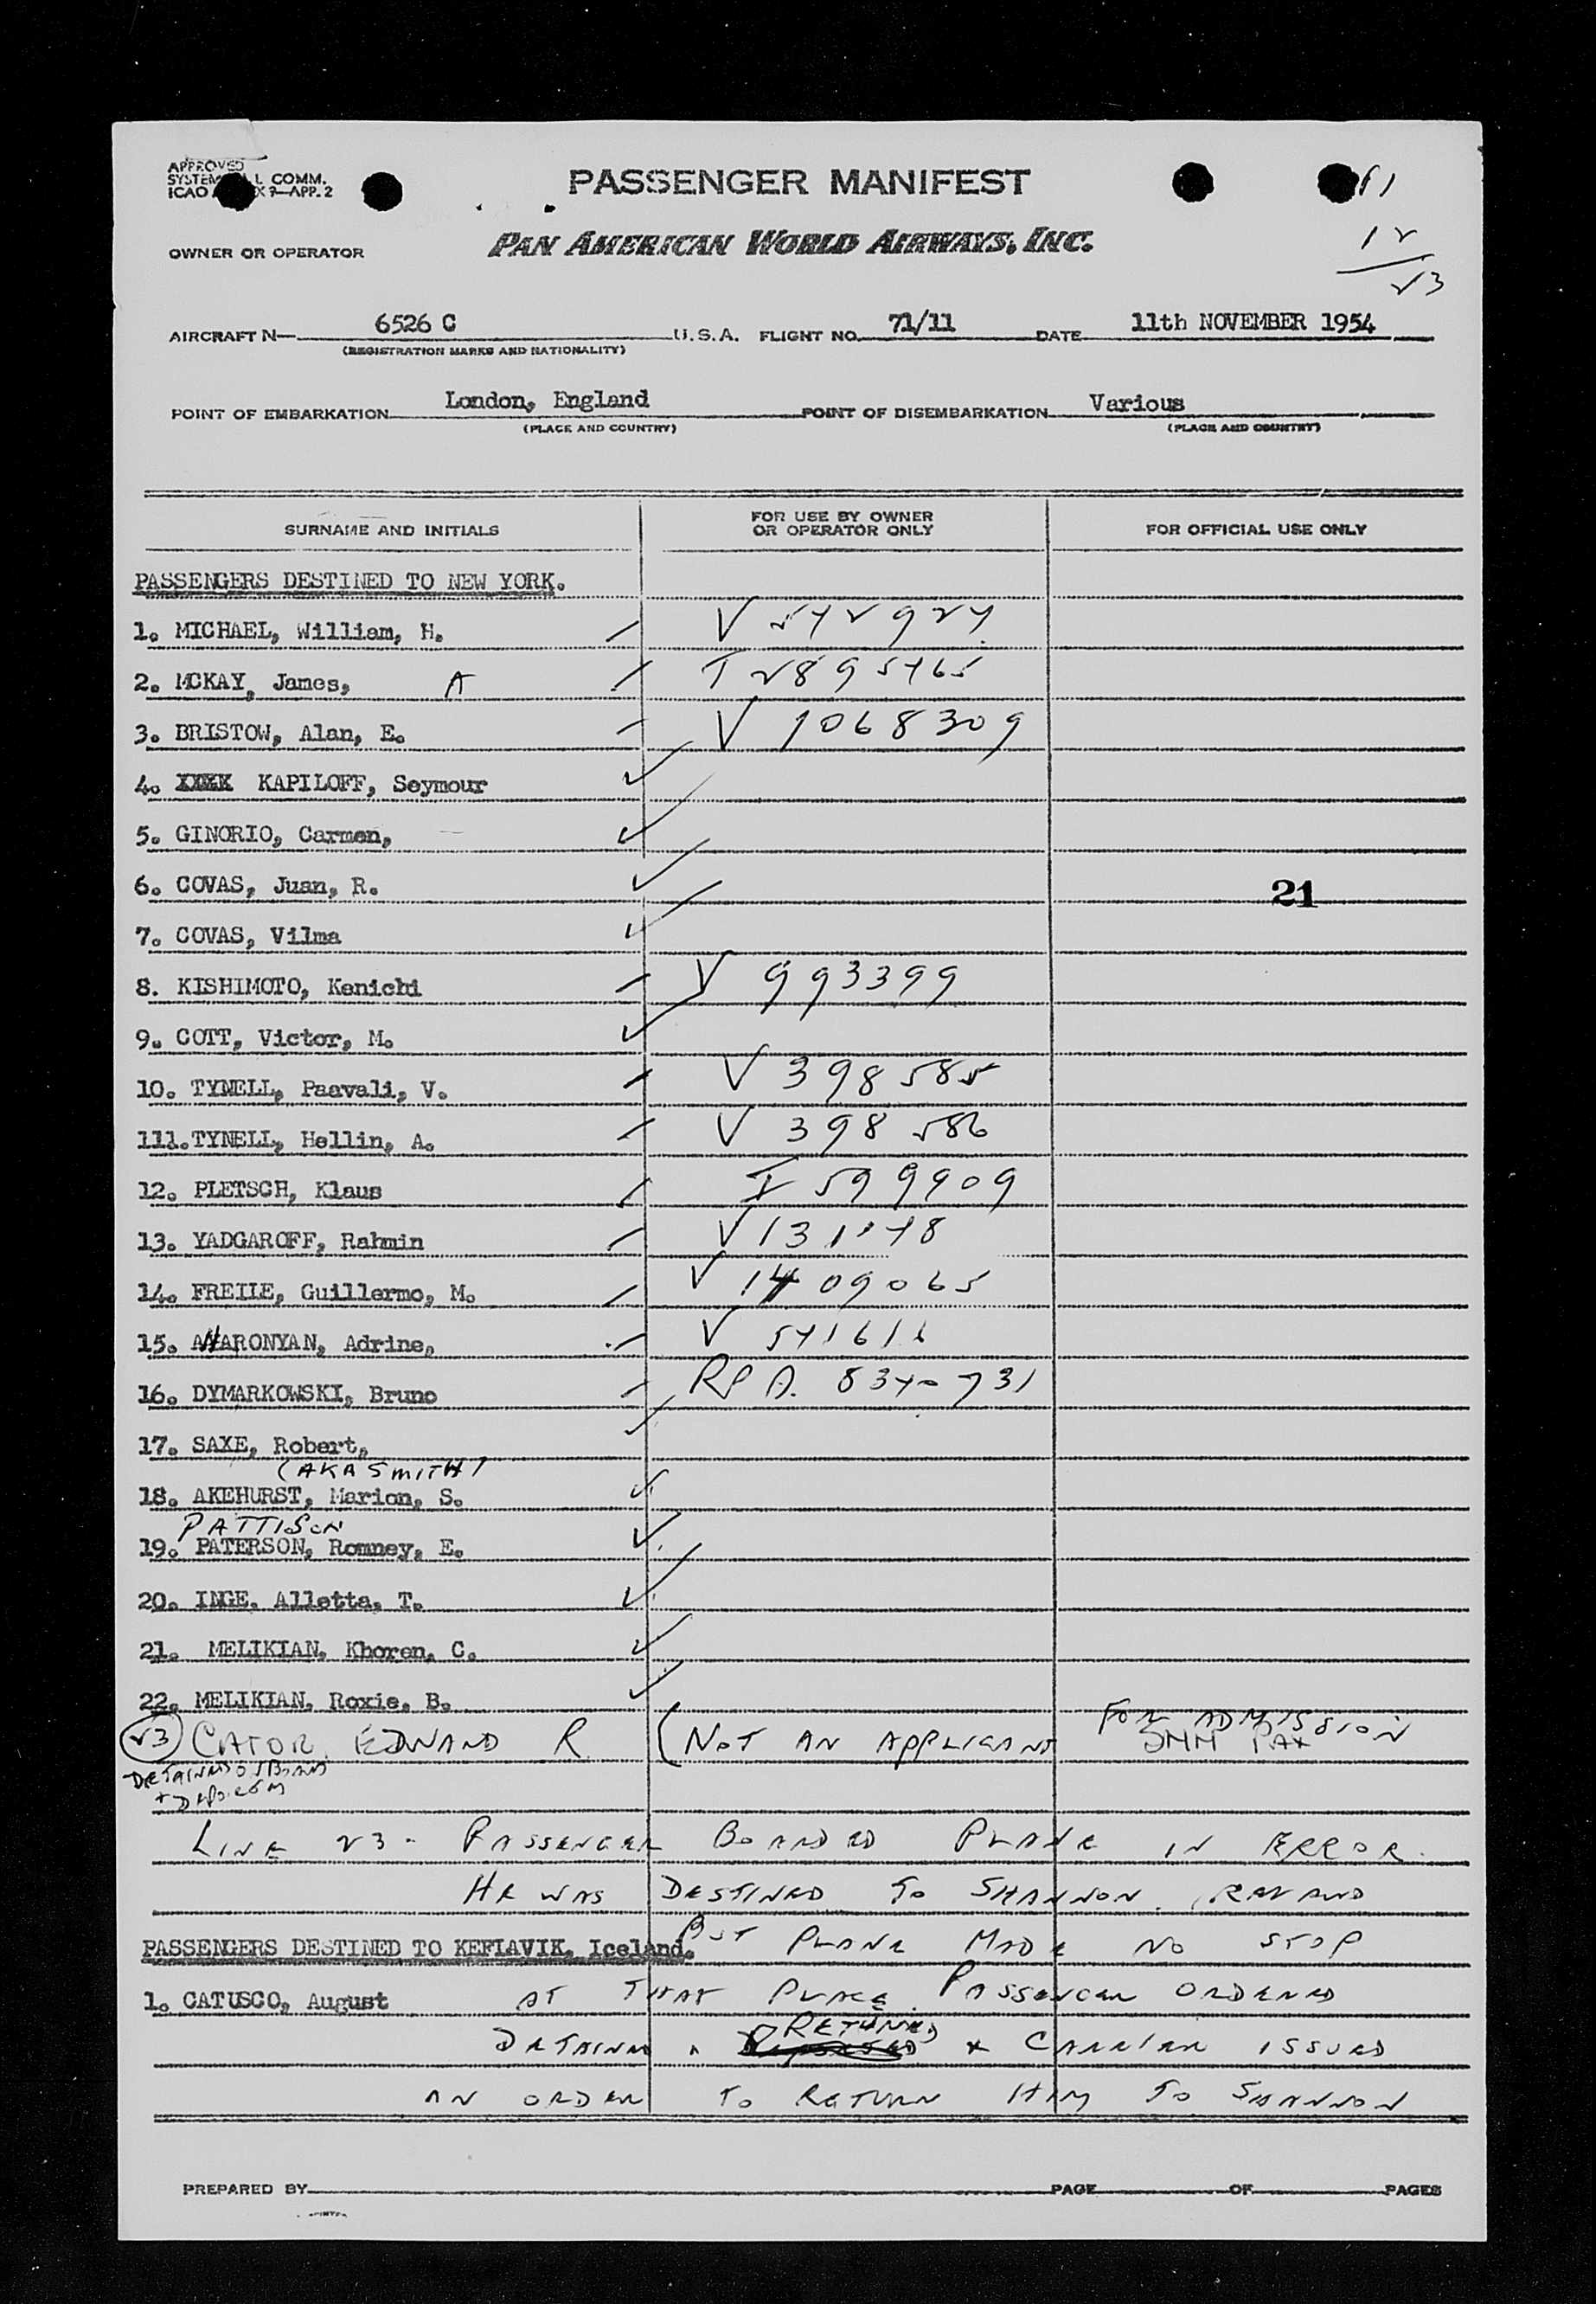 APPROVED
SYSTEM L COMM.
ICAO X 9—APP. 2
PASSENGER MANIFEST
11
OWNER OR OPERATOR
PAN AMERICAN WORLD AIRWAYS, INC.
12
23
AIRCRAFT N— 6526 C U.S.A. FLIGHT NO. 71/11 DATE 11th NOVEMBER 1954
(REGISTRATION MARKS AND NATIONALITY)
POINT OF EMBARKATION London, England POINT OF DISEMBARKATION Various
(PLACE AND COUNTRY) (PLACE AND COUNTRY)
SURNAME AND INITIALS FOR USE BY OWNER OR OPERATOR ONLY FOR OFFICIAL USE ONLY
PASSENGERS DESTINED TO NEW YORK.
1. MICHAEL, William, H. V 542924
2. MCKAY, James, A I 2895465
3. BRISTOW, Alan, E. V 1068309
4. XXXX KAPILOFF, Seymour
5. GINORIO, Carmen,
6. COVAS, Juan, R.
21
7. COVAS, Vilma
8. KISHIMOTO, Kenichi V 993399
9. COTT, Victor, M.
10. TYNELL, Paavali, V. V 398585
111. TYNELL, Hellin, A. V 398586
12. PLETSCH, Klaus I 599909
13. YADGAROFF, Rahmin
14. FREILE, Guillermo, M. V 1409065
15. AHARONYAN, Adrine, V 541616
16. DYMARKOWSKI, Bruno RP A. 8340731
17. SAXE, Robert,
(AKA SMITH)
18. AKEHURST, Marion, S.
PATTISON
19. PATERSON, Romney, E.
20. INGE, Alletta, T.
21. MELIKIAN, Khoren, C.
22. MELIKIAN, Roxie, B.
23 CATOR, EDWARD R (NOT AN APPLICANT FOR ADMISSION
DETAINED
LINE 23 - PASSENGER BOARDED PLANE IN ERROR.
HE WAS DESTINED TO SHANNON,
BUT PLANE MADE NO STOP
PASSENGERS DESTINED TO KEFLAVIK, Iceland.
1. CATUSCO, August
AT THAT PLACE. PASSENGER ORDERED
DETAINED & RETURNED & CARRIER ISSUED
AN ORDER TO RETURN HIM TO SHANNON
PREPARED BY PAGE OF PAGES